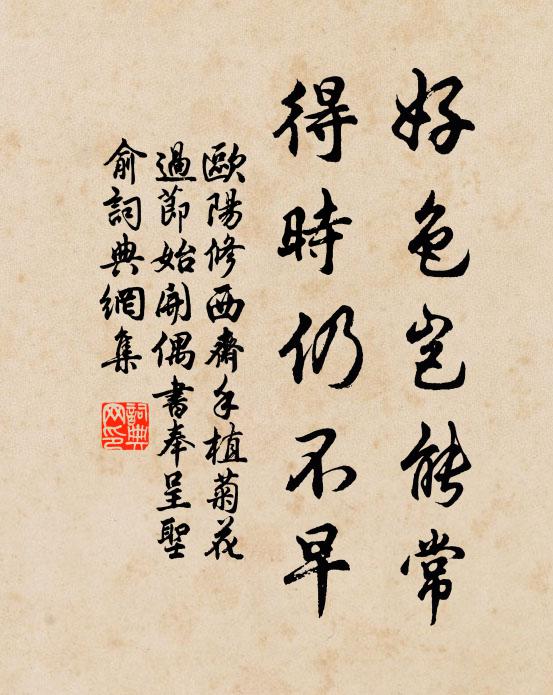 好色岂能常
得時仍不早
歐陽修西齋手植菊花
過節始開偶書奉呈聖
俞詞典網集
詞典
网印